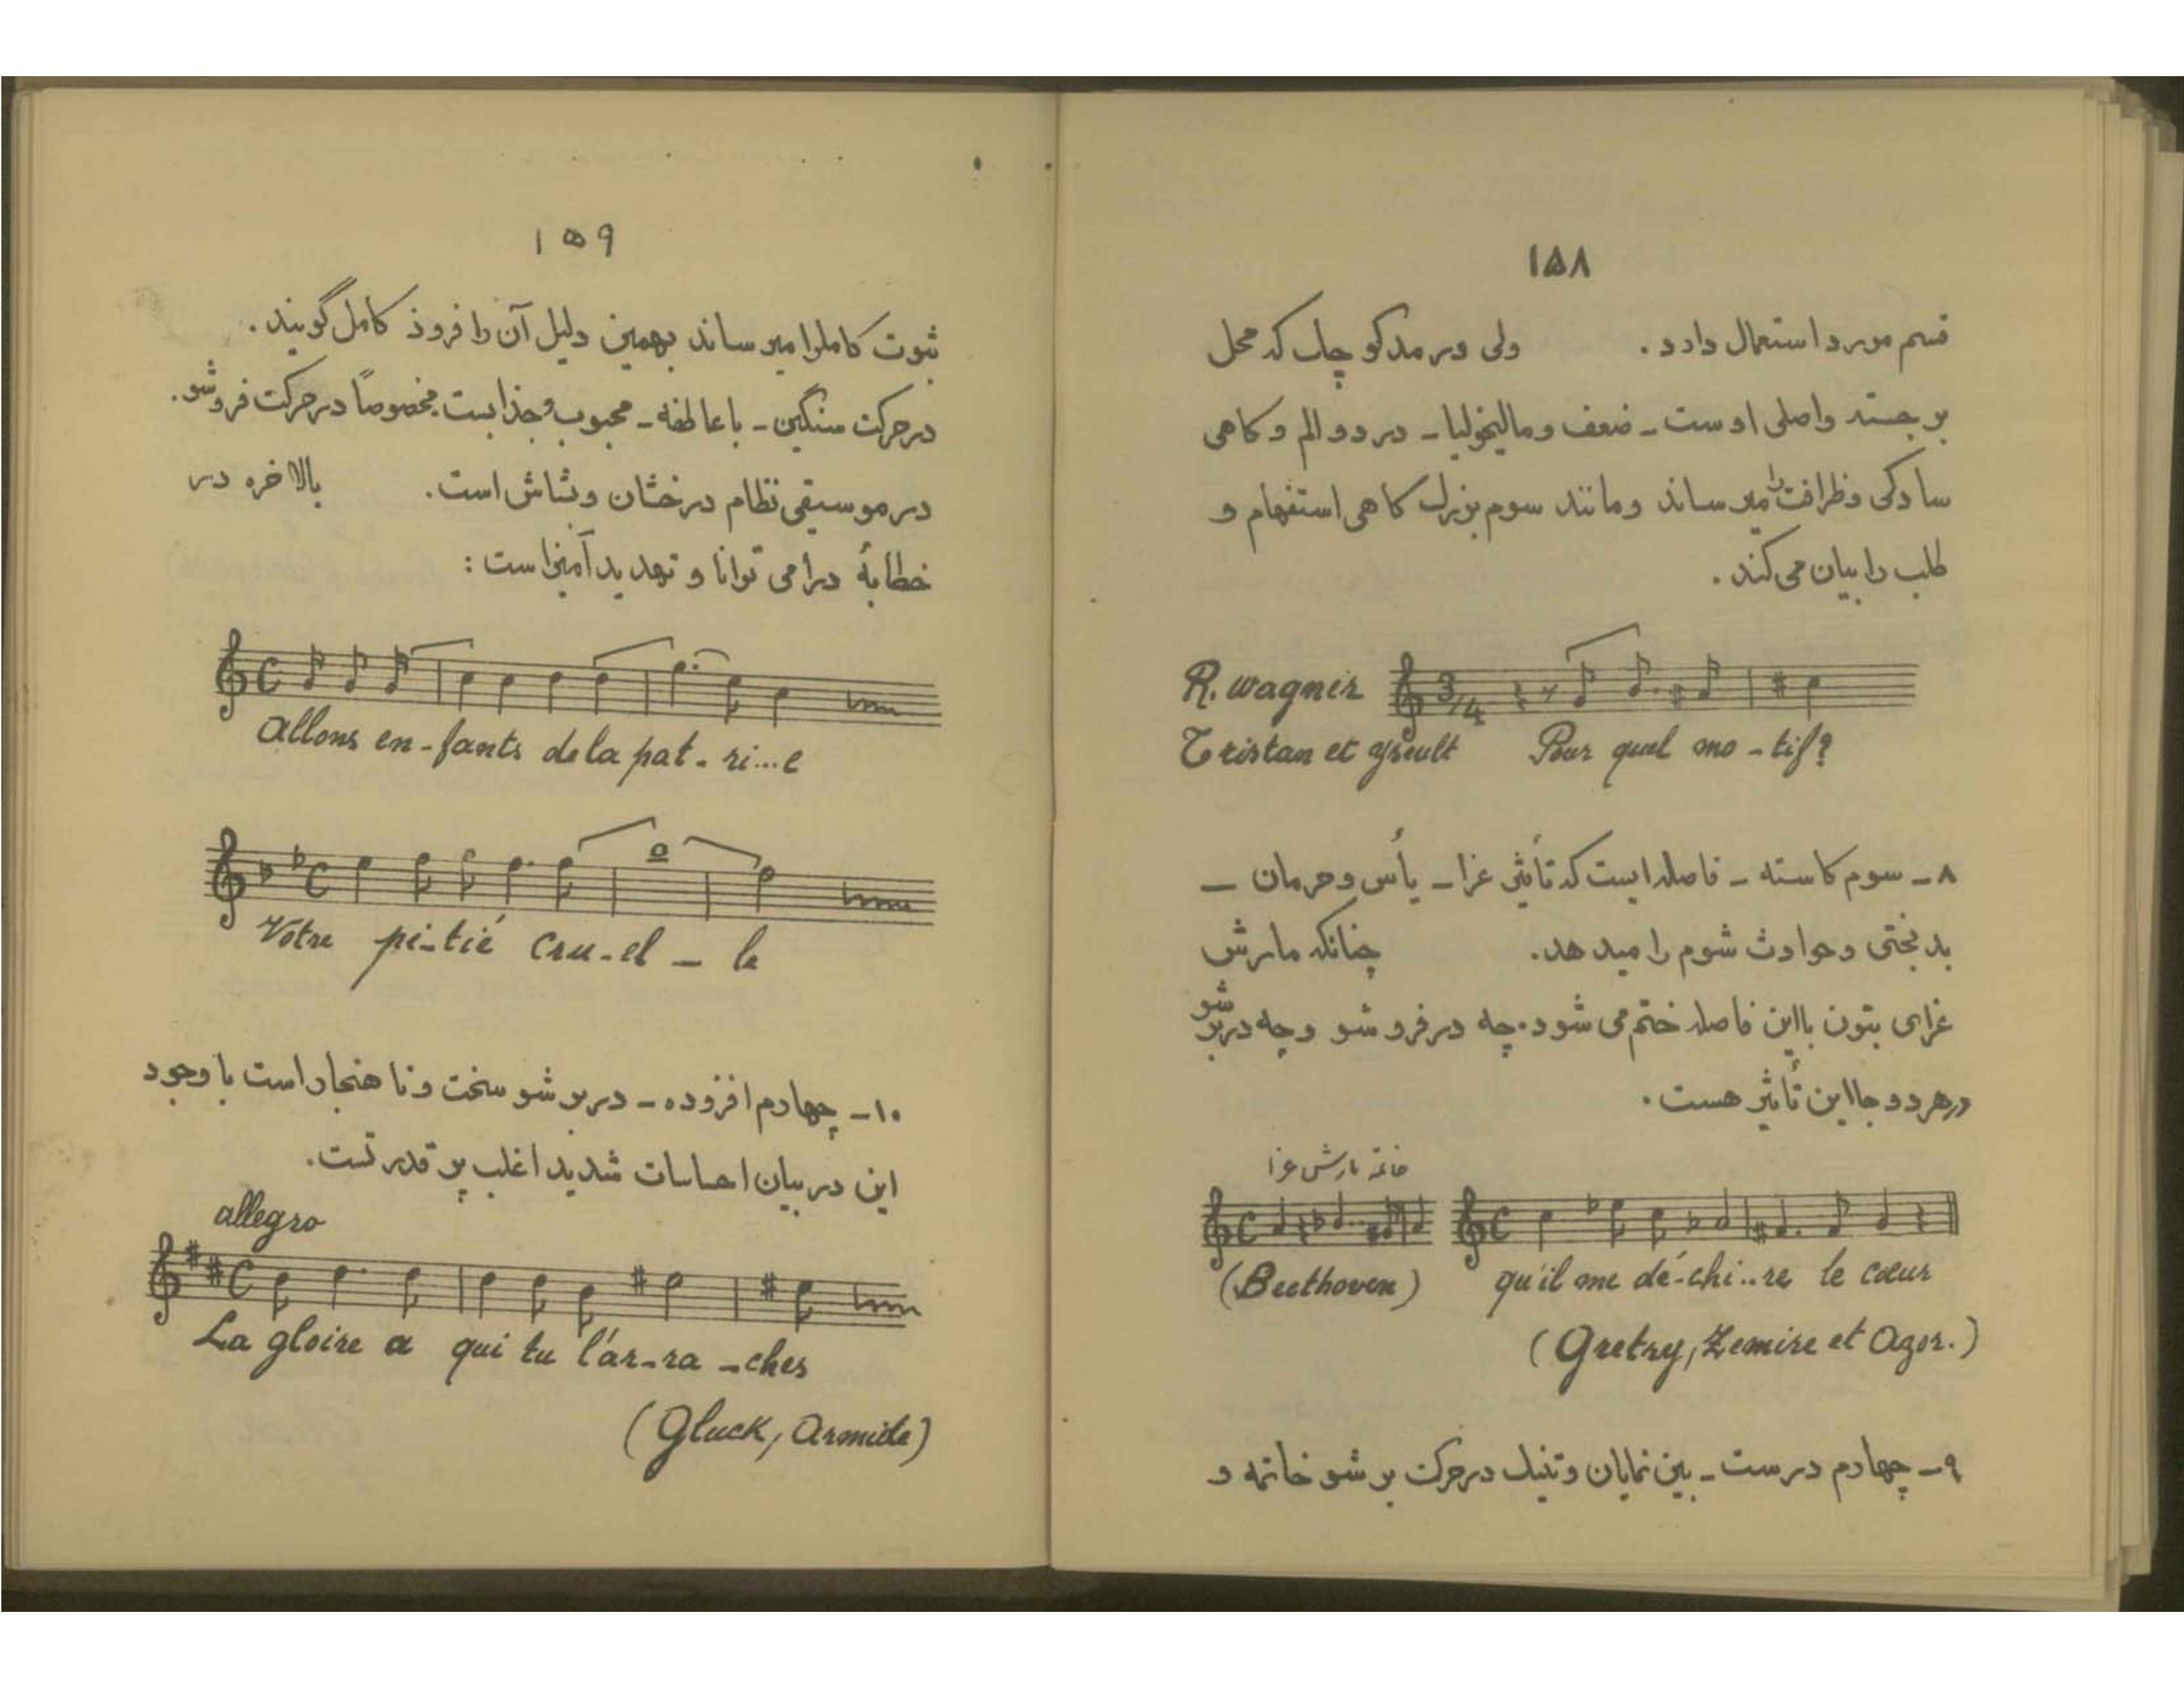 ۱۵۸
قسم مورد استعمال دارد . ولی در مد کوچک که محل
برجسته و اصلی اوست - ضعف و مالیخولیا - درد و الم و کاهی
سادکی و ظرافت را میرساند و مانند سوم بزرگ کاهی استفهام و
طلب را بیان می کند .
R. Wagner
3/4
Tristan et Yseult Pour quel mo - tif?
۸ - سوم کاسته - فاصله ایست که تأثیر عزا - یأس و حرمان -
بدبختی و حوادث شوم را میدهد. چنانکه مارش
عزای بتون با این فاصله ختم می شود. چه در فروشو و چه در برشو
در هر دو جا این تأثیر هست .
خاتمه مارش عزا
(Beethoven) qu'il me dé-chi..re le cœur
(Gretry, Zemire et Azor.)
۹ - چهارم درست - بین نمایان و تنیک در حرکت برشو خاتمه و
۱۵۹
ثبوت کاملرا میرساند بهمین دلیل آن را فرود کامل گویند .
در حرکت سنگین - با عاطفه - محبوب و جذابست مخصوصاً در حرکت فروشو.
در موسیقی نظام درخشان و بشاش است. بالاخره در
خطابهٔ درامی توانا و تهدید آمیز است :
Allons en-fants de la pat - ri...e
Votre pi-tié cru-el - le
۱۰ - چهارم افزوده - در برشو سخت و نا هنجار است با وجود
این در بیان احساسات شدید اغلب پر قدرتست.
allegro
La gloire a qui tu l'ar-ra -ches
(Gluck, Armide)